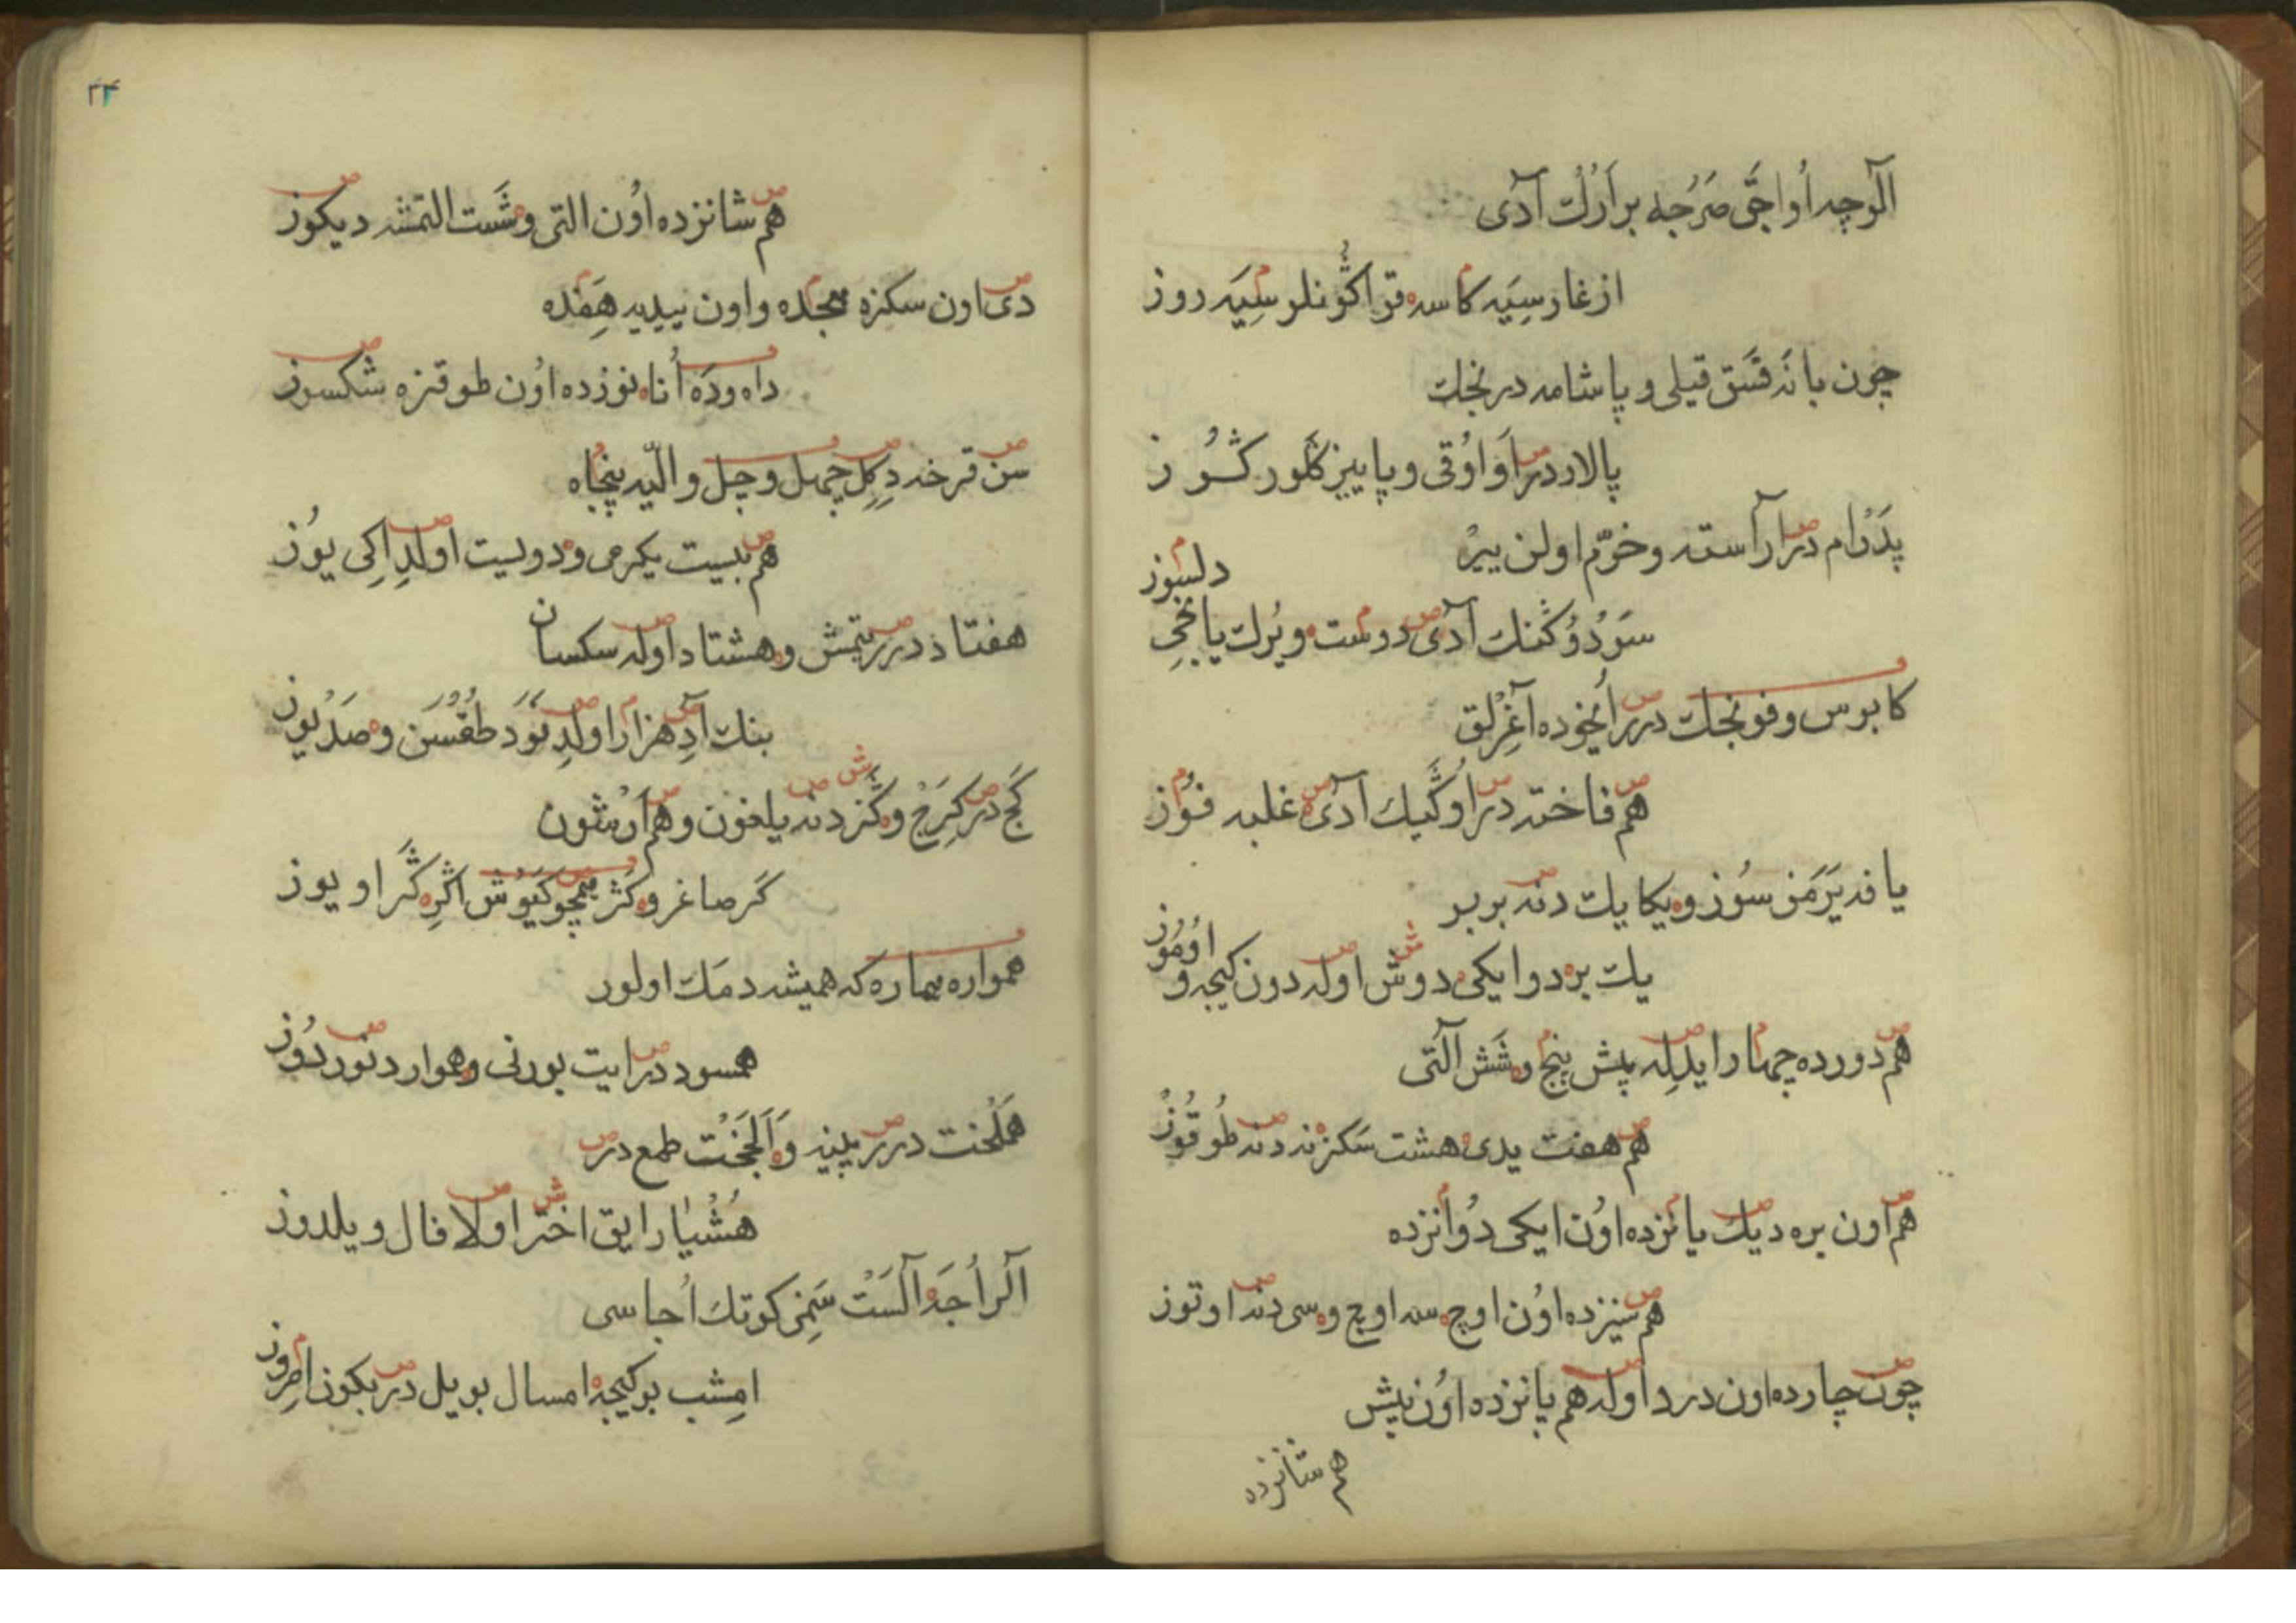 آلوچه اواجی مرجه بر ارك آدی
ازغار سیه کاسه قرا کونلر سیه روز
چون بانه فسق قیلی و پاشامه در نجك
پالار در او اوقی و پاییز کلور کوز
پدرام در آراسته و خرم اولن ییر
دلسوز
سودوکنك آدی دوست و یرك یاخجی
کابوس و فونجك در اخوده آغرلق
هم فاخته در اوکیك آدی غلبه فوز
یافه یرمز سوز و یکایك دنه بربر
اوموز
یك بر دو ایکی دوش اوله دون کیجه و
هم دورده چهار ایدله پش پنج و شش آلتی
هم هفت یدی هشت سکزنه دنه طوقوز
هم اون بره دیك یانزده اون ایکی دوانزده
هم سیزده اون اوچ سه اوچ و سی دنه اوتوز
چون چارده اون درد اوله هم پانزده اون پش
هم شانزده
۲۴
هم شانزده اون التی و شست التمشه دیکوز
دی اون سکزه هجده و اون ییدیه هفده
داه و ده اناه نوزده اون طوقزه شکسوز
سن قرخه دکل چهل و چل و اللیه پنجاه
هم بیست یکرمی و دویست اولد اکی یوز
هفتاد در یتمش و هشتاد اوله سکسان
بنك آد هزار اولد نود طقسن و صد یوز
کج در کرخ و کز دنه یلغون و هم ارمثون
کر صاغر و کژ پیچو کیوش اکره کر اویوز
همواره هماره که همیشه دمك اولور
همسود در ایت بورنی و هموار دنور دوز
هلخت در پینه و الجخت طمع در
هشیار ایق اختر اولا فال و یلدوز
آلر اجه آلست سمز کوتك اجاسی
امشب بو کیجه امسال بو ییل در بکون امروز